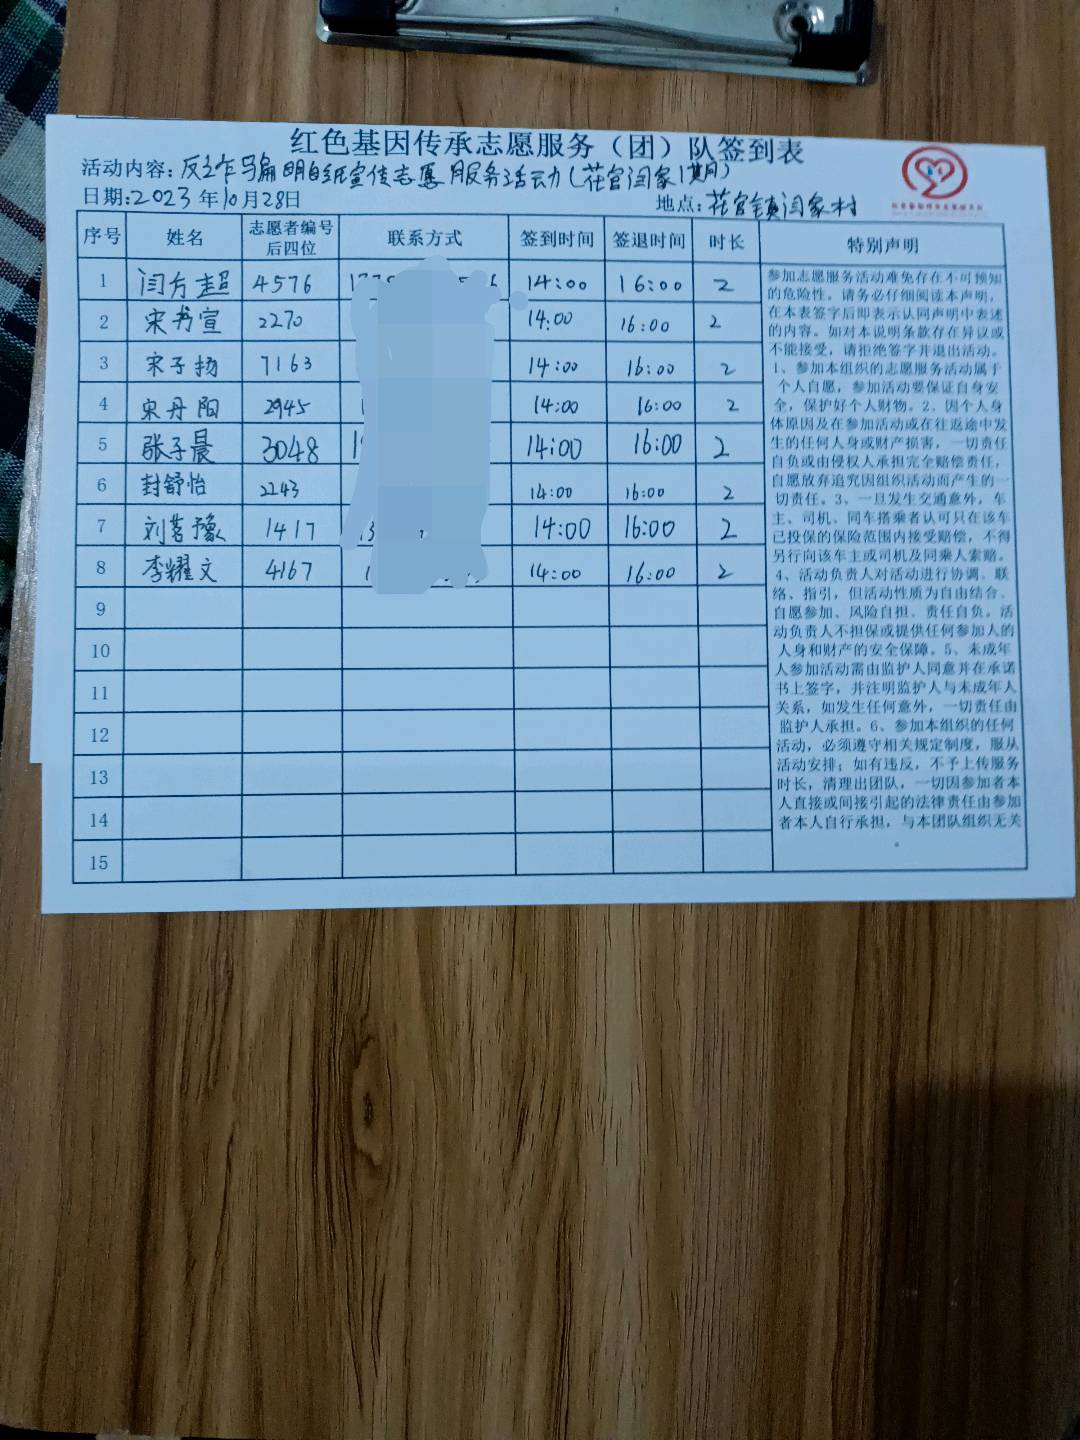 红色基因传承志愿服务（团）队签到表
活动内容：反诈骗明白纸宣传志愿服务活动（花官闫家1期）
日期：2023年10月28日 地点：花官镇闫家村
序号 姓名 志愿者编号后四位 联系方式 签到时间 签退时间 时长 特别声明
1 闫方超 4576 14:00 16:00 2
2 宋书宣 2270 14:00 16:00 2
3 宋子扬 7163 14:00 16:00 2
4 宋丹阳 2945 14:00 16:00 2
5 张子晨 3048 14:00 16:00 2
6 封舒怡 2243 14:00 16:00 2
7 刘茗豫 1417 14:00 16:00 2
8 李耀文 4167 14:00 16:00 2
9
10
11
12
13
14
15
参加志愿服务活动难免存在不可预知
的危险性。请务必仔细阅读本声明，
在本表签字后即表示认同声明中表述
的内容。如对本说明条款存在异议或
不能接受，请拒绝签字并退出活动。
1、参加本组织的志愿服务活动属于
个人自愿，参加活动要保证自身安
全，保护好个人财物。2、因个人身
体原因及在参加活动或在往返途中发
生的任何人身或财产损害，一切责任
自负或由侵权人承担完全赔偿责任，
自愿放弃追究因组织活动而产生的一
切责任。3、一旦发生交通意外，车
主、司机、同车搭乘者认可只在该车
已投保的保险范围内接受赔偿，不得
另行向该车主或司机及同乘人索赔。
4、活动负责人对活动进行协调、联
络、指引，但活动性质为自由结合、
自愿参加、风险自担、责任自负。活
动负责人不担保或提供任何参加人的
人身和财产的安全保障。5、未成年
人参加活动需由监护人同意并在承诺
书上签字，并注明监护人与未成年人
关系，如发生任何意外，一切责任由
监护人承担。6、参加本组织的任何
活动，必须遵守相关规定制度，服从
活动安排；如有违反，不予上传服务
时长，清理出团队，一切因参加者本
人直接或间接引起的法律责任由参加
者本人自行承担，与本团队组织无关
。